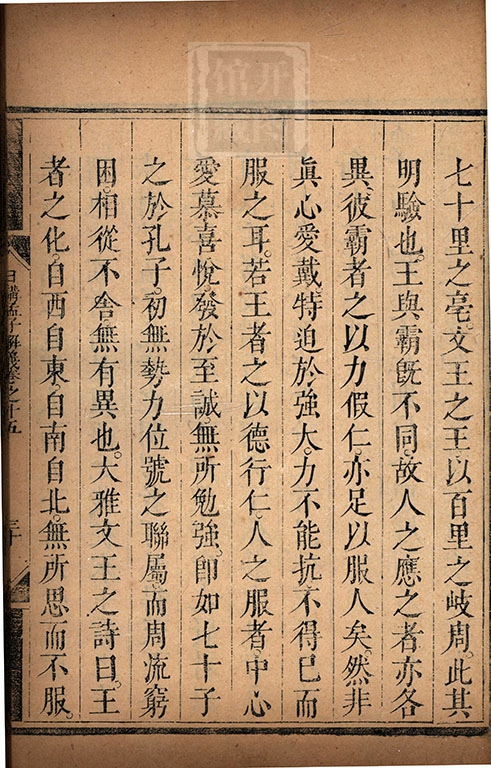 七十里之亳。文王之王。以百里之岐周。此其
明驗也。王與霸旣不同。故人之應之者亦各
異。彼霸者之以力假仁。亦足以服人矣。然非
眞心愛戴。特迫於強大。力不能抗。不得已而
服之耳。若王者之以德行仁。人之服者。中心
愛慕喜悅。發於至誠。無所勉強。卽如七十子
之於孔子。初無勢力位號之聯屬。而周流窮
困。相從不舍。無有異也。大雅文王之詩曰。王
者之化。自西自東。自南自北。無所思而不服。
日講孟子解義卷之十五